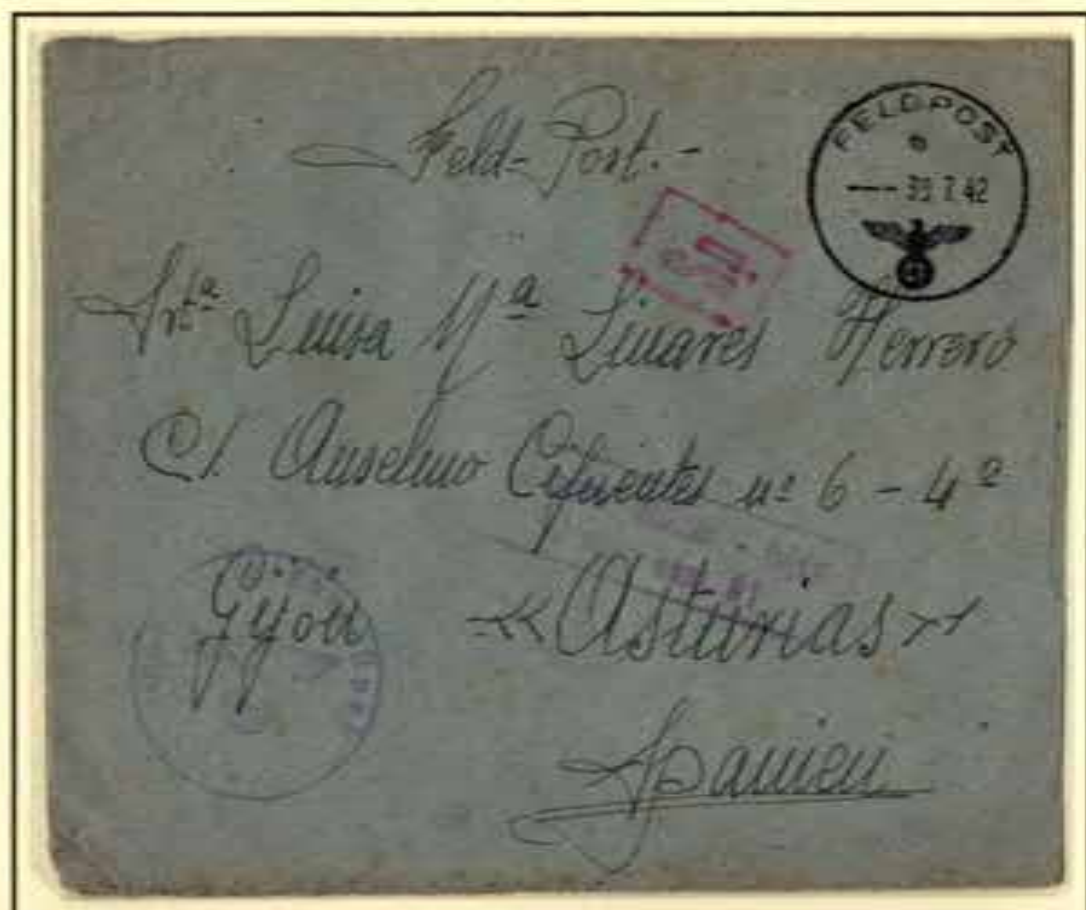 Feld-Post.-
FELDPOST
7.42
Srta Luisa Mª Linares Herrero
C/. Anselmo Cifuentes nº 6 - 4º
Gijón «Asturias»
Spanien